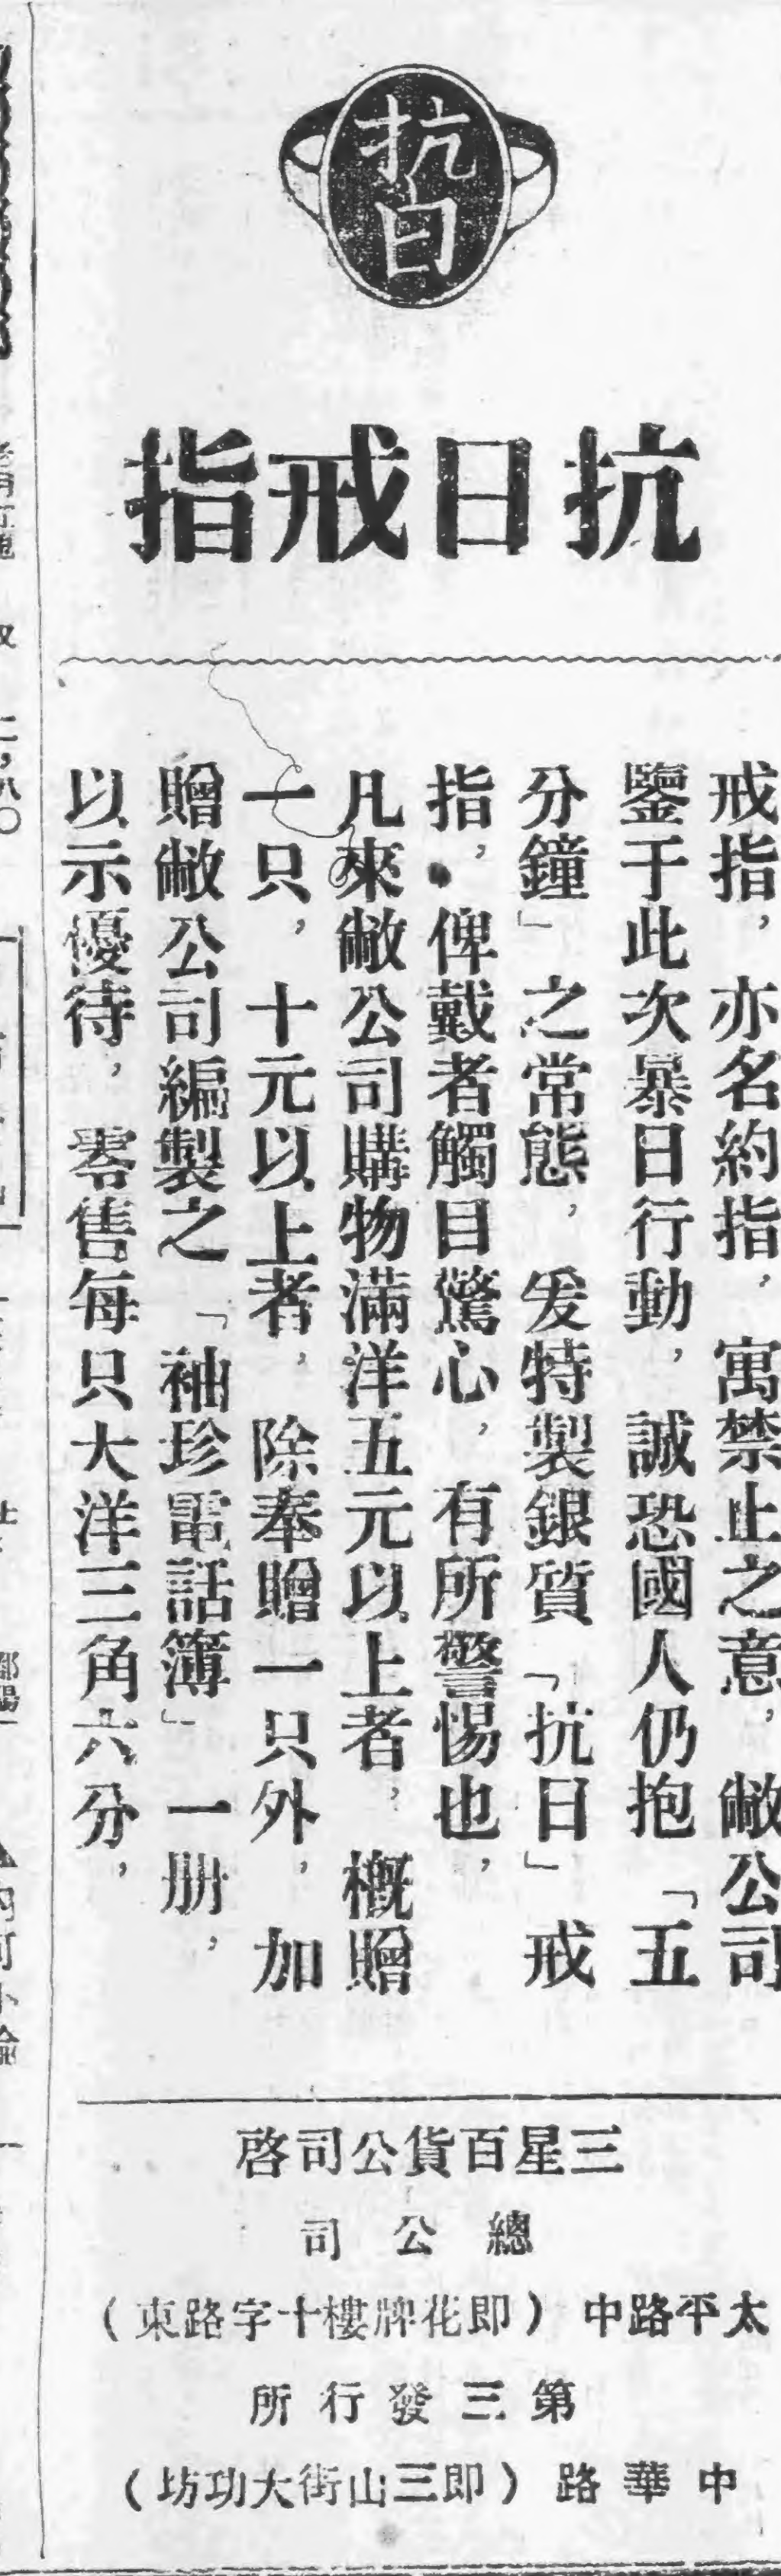 抗
日
抗日戒指
戒指，亦名約指，寓禁止之意，敝公司
鑒于此次暴日行動，誠恐國人仍抱「五
分鐘」之常態，爰特製銀質「抗日」戒
指，俾戴者觸目驚心，有所警惕也，
凡來敝公司購物滿洋五元以上者，概贈
一只，十元以上者，除奉贈一只外，加
贈敝公司編製之「袖珍電話簿」一册，
以示優待，零售每只大洋三角六分，
三星百貨公司啓
總公司
太平路中（即花牌樓十字路東）
第三發行所
中華路（即三山街大功坊）